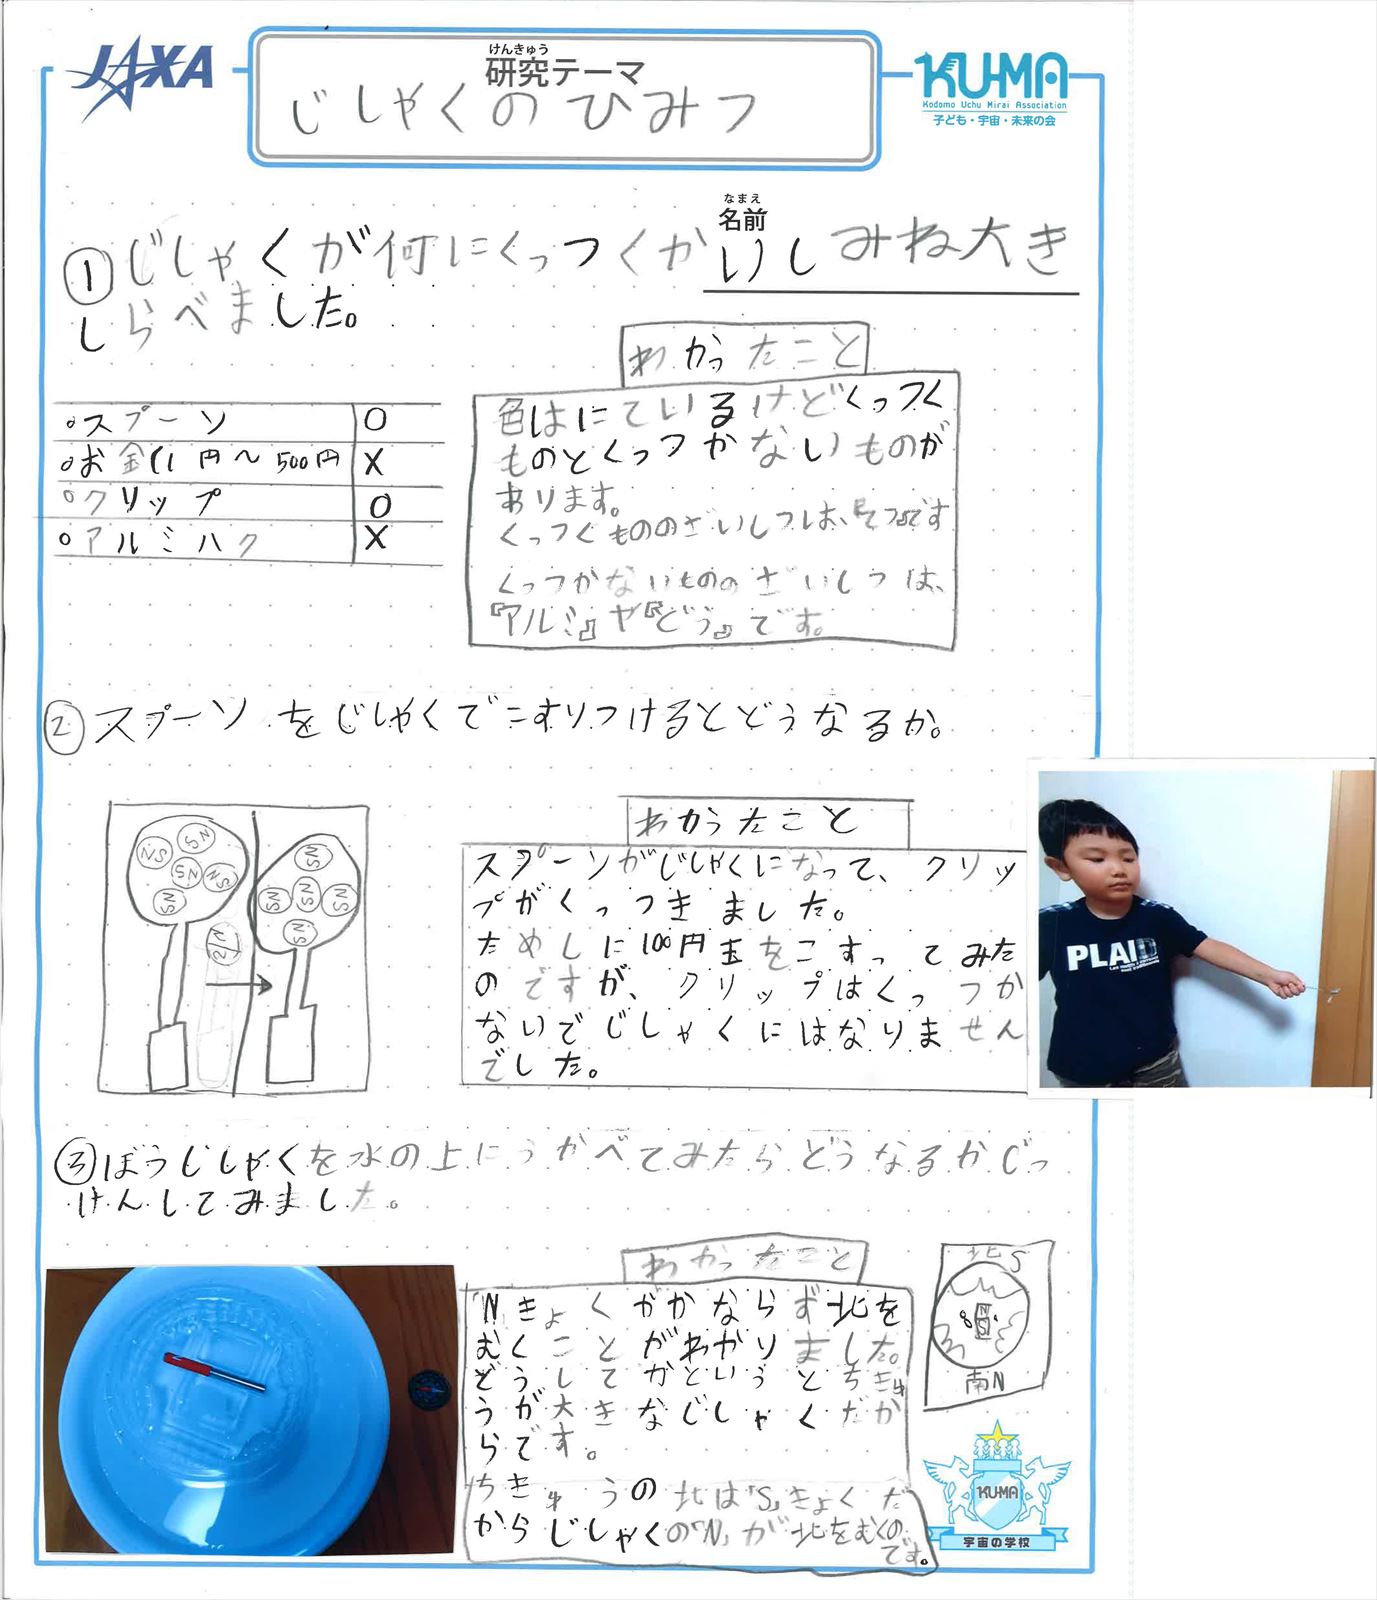 JAXA
けんきゅう
研究テーマ
じしゃくのひみつ
KU-MA
Kodomo Uchu Mirai Association
子ども・宇宙・未来の会
なまえ
名前
いしみね大き
①じしゃくが何にくっつくか
しらべました。
わかったこと
○スプーン ○
○お金(1円～500円 ×
○クリップ ○
○アルミハク ×
色はにているけどくっつく
ものとくっつかないものが
あります。
くっつくもののざいしつは、『てつ』です
くっつかないもののざいしつは、
『アルミ』や『どう』です。
②スプーンをじしゃくでこすりつけるとどうなるか。
わかったこと
スプーンがじしゃくになって、クリッ
プがくっつきました。
ためしに100円玉をこすってみた
のですが、クリップはくっつか
ないでじしゃくにはなりません
でした。
NS
SN
NS
SN
SN
SN
SN
SN
SN
SN
SN
PLAI
③ぼうじしゃくを水の上にうかべてみたらどうなるかじっ
けんしてみました。
わかったこと
「Nきょくがかならず北を
むくことがわかりました。
どうしてかというとちきゅ
うが大きなじしゃくだか
らです。
ちきゅうの北は「S」きょくだ
からじしゃくの「N」が北をむくの
です。
北S
N
S
南N
KU-MA
宇宙の学校